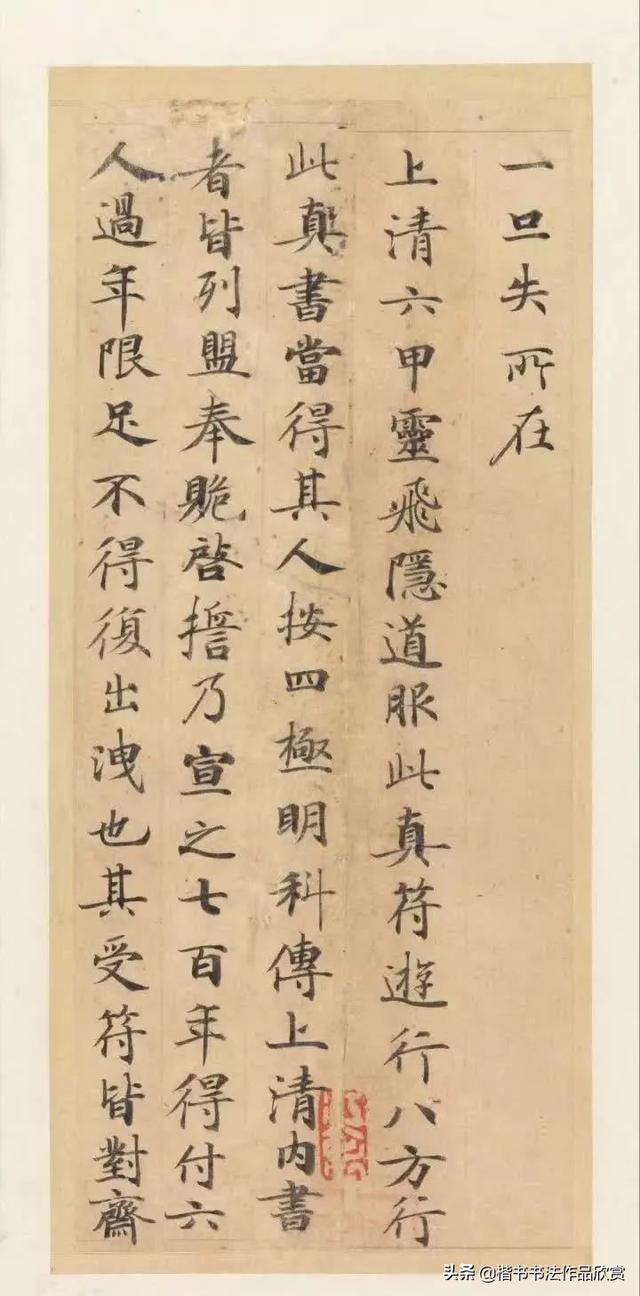 一旦失所在
上清六甲靈飛隱道服此真符遊行八方行
此真書當得其人按四極明科傳上清內書
者皆列盟奉贍啓誓乃宣之七百年得付六
人過年限足不得復出洩也其受符皆對齋
头条 @楷书书法作品欣赏